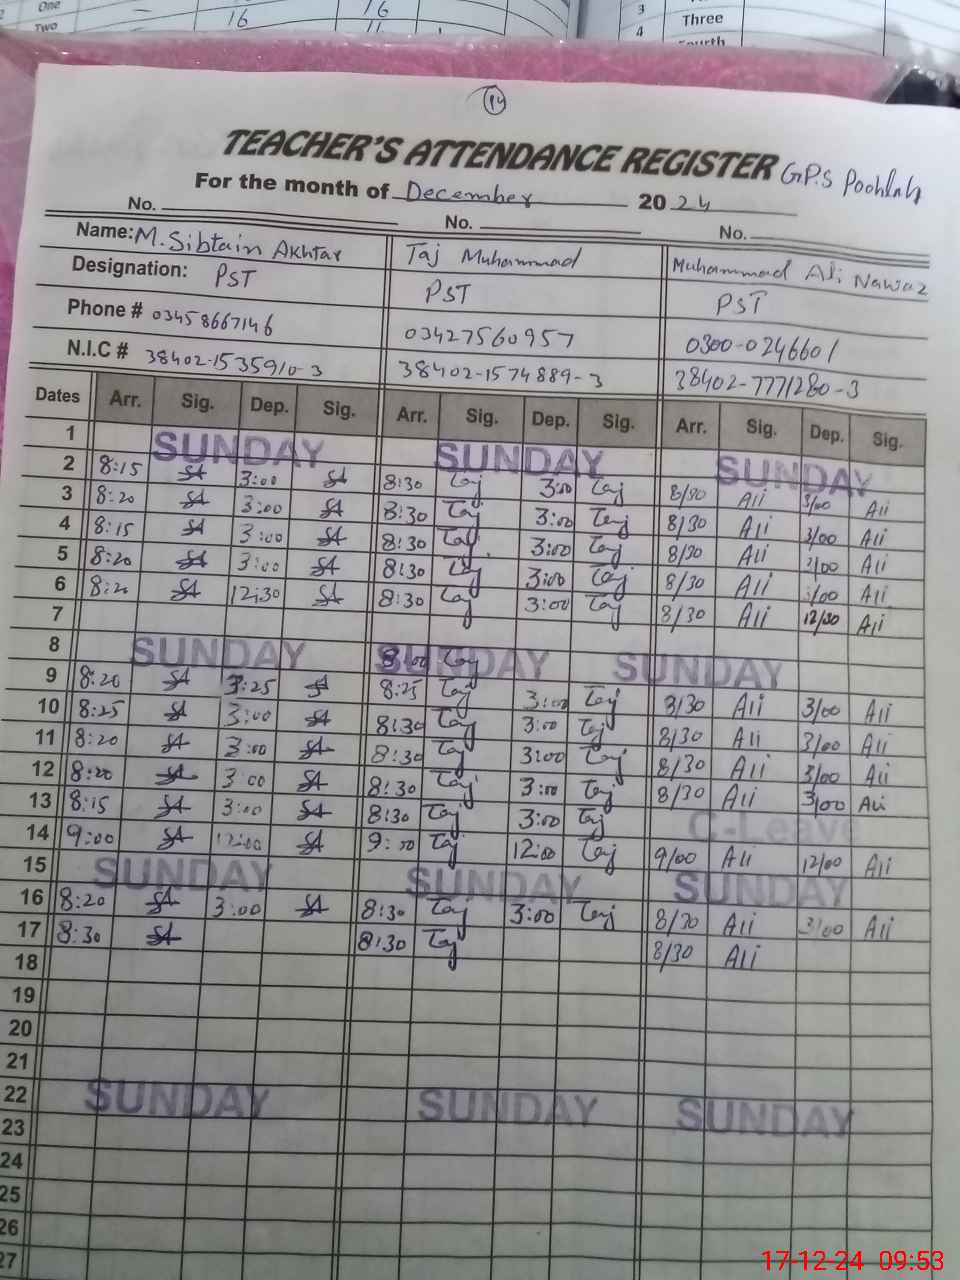 One 16 16
Two 16 11
3 Three
4 Fourth
14
TEACHER'S ATTENDANCE REGISTER G.P.S Poohlah
For the month of December 2024
No. No. No.
Name: M. Sibtain Akhtar Taj Muhammad Muhammad Ali Nawaz
Designation: PST PST PST
Phone # 03458667146 03427560957 0300-0246601
N.I.C # 38402-1535910-3 38402-1574889-3 38402-7771280-3
Dates Arr. Sig. Dep. Sig. Arr. Sig. Dep. Sig. Arr. Sig. Dep. Sig.
1 SUNDAY SUNDAY SUNDAY
2 8:15 SA 3:00 SA 8:30 Taj 3:00 Taj 8/30 Ali 3/00 Ali
3 8:20 SA 3:00 SA 8:30 Taj 3:00 Taj 8/30 Ali 3/00 Ali
4 8:15 SA 3:00 SA 8:30 Taj 3:00 Taj 8/30 Ali 3/00 Ali
5 8:20 SA 3:00 SA 8:30 Taj 3:00 Taj 8/30 Ali 3/00 Ali
6 8:20 SA 12:30 SA 8:30 Taj 3:00 Taj 8/30 Ali 12/30 Ali
7
8 SUNDAY SUNDAY Taj SUNDAY
9 8:20 SA 3:25 SA 8:25 Taj 3:00 Taj 8/30 Ali 3/00 Ali
10 8:25 SA 3:00 SA 8:30 Taj 3:00 Taj 8/30 Ali 3/00 Ali
11 8:20 SA 3:00 SA 8:30 Taj 3:00 Taj 8/30 Ali 3/00 Ali
12 8:20 SA 3:00 SA 8:30 Taj 3:00 Taj 8/30 Ali 3/00 Ali
13 8:15 SA 3:00 SA 8:30 Taj 3:00 Taj C-Leave
14 9:00 SA 12:00 SA 9:00 Taj 12:00 Taj 9/00 Ali 12/00 Ali
15 SUNDAY SUNDAY SUNDAY
16 8:20 SA 3:00 SA 8:30 Taj 3:00 Taj 8/30 Ali 3/00 Ali
17 8:30 SA 8:30 Taj 8/30 Ali
18
19
20
21
22 SUNDAY SUNDAY SUNDAY
23
24
25
26
27
17-12-24 09:53